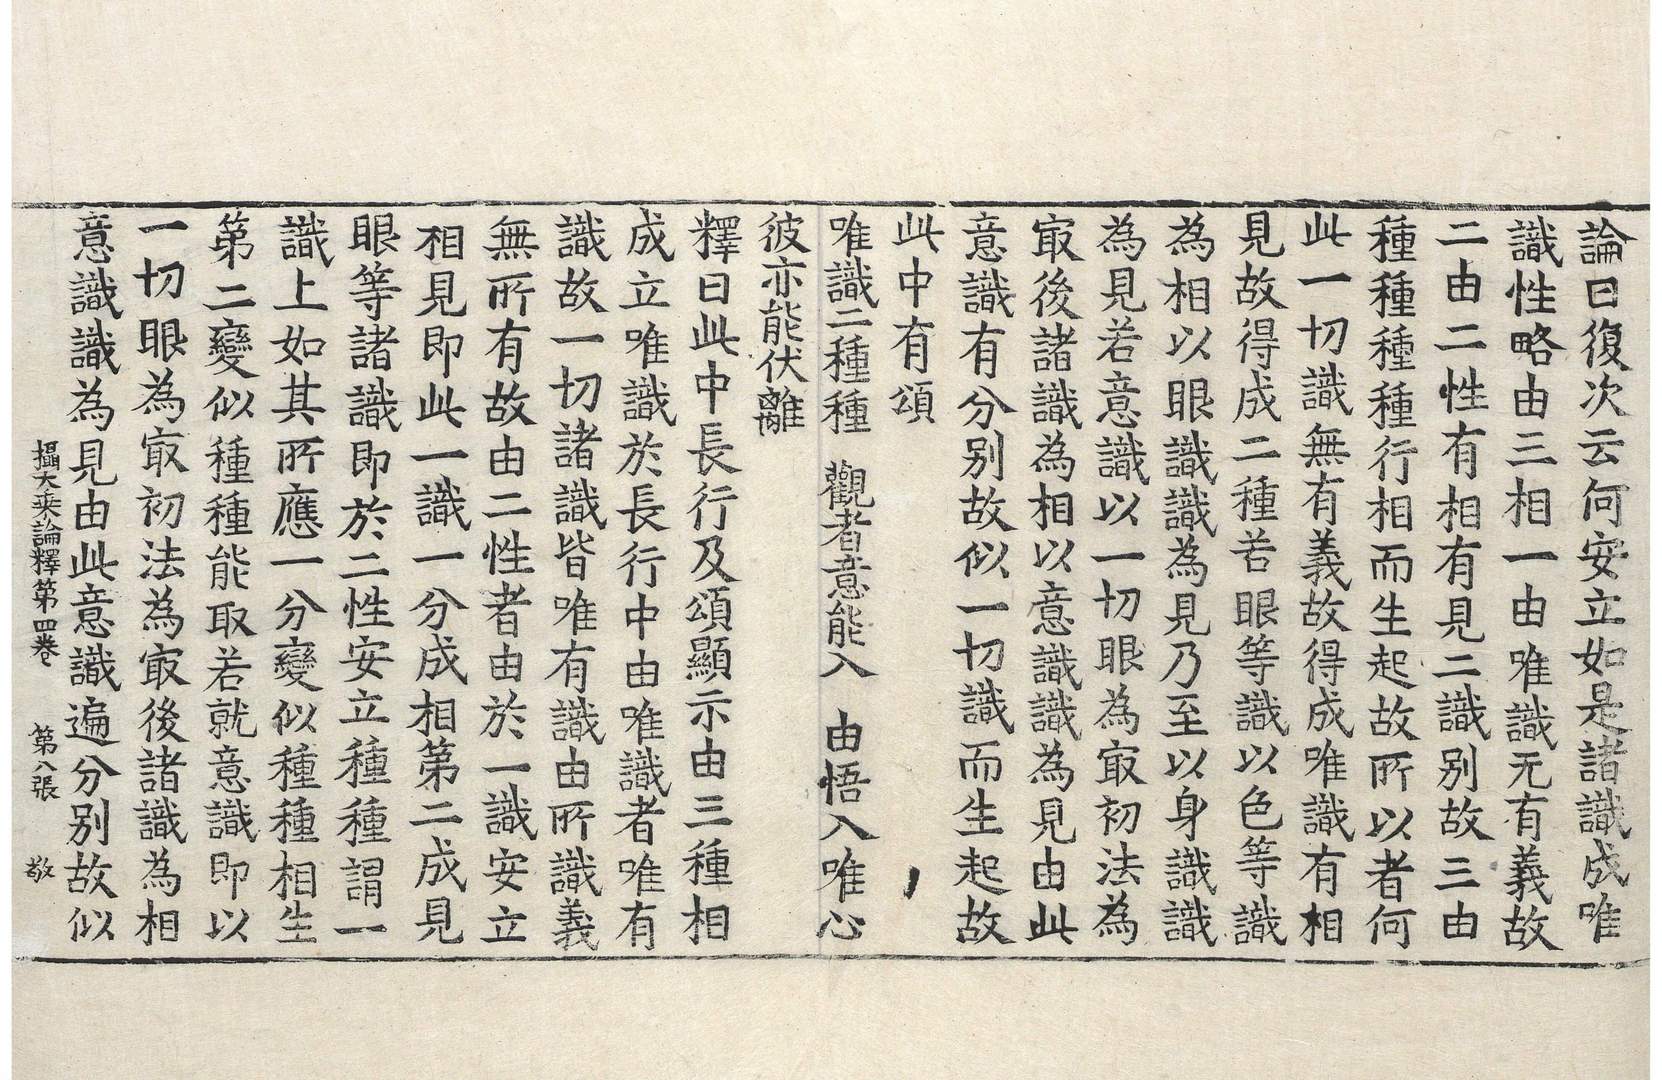 論曰復次云何安立如是諸識成唯
識性略由三相一由唯識无有義故
二由二性有相有見二識別故三由
種種種種行相而生起故所以者何
此一切識無有義故得成唯識有相
見故得成二種若眼等識以色等識
為相以眼識識為見乃至以身識識
為見若意識以一切眼為㝡初法為
㝡後諸識為相以意識識為見由此
意識有分別故似一切識而生起故
此中有頌
唯識二種種　觀者意能入　由悟入唯心
彼亦能伏離
釋曰此中長行及頌顯示由三種相
成立唯識於長行中由唯識者唯有
識故一切諸識皆唯有識由所識義
無所有故由二性者由於一識安立
相見即此一識一分成相第二成見
眼等諸識即於二性安立種種謂一
識上如其所應一分變似種種相生
第二變似種種能取若就意識即以
一切眼為㝡初法為㝡後諸識為相
意識識為見由此意識遍分別故似
攝大乘論釋第四卷　第八張　敬